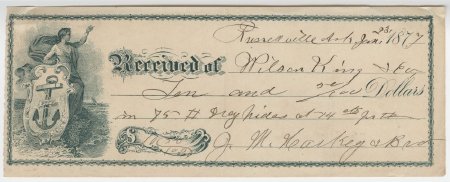 Russellville Ark Jan 23 1877
Received of Wilson King & Co
Ten and 50/100 Dollars
in 75 # Dry hides at 14 cts pr #
$ 10 50/100 J. M. & Bro